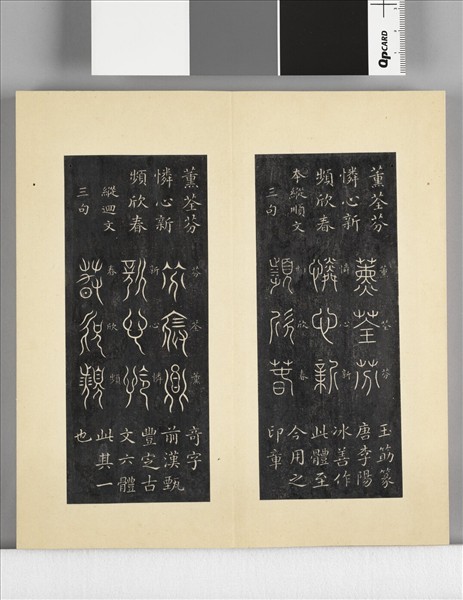 QpCARD
薰荃芬
憐心新
頻欣春
本縱順文
三句
薰荃芬
薰荃芬
憐心新
憐心新
頻欣春
頻欣春
玉筯篆
唐李陽
冰善作
此體至
今用之
印章
薰荃芬
憐心新
頻欣春
縱迴文
三句
芬荃薰
芬荃薰
新心憐
新心憐
春欣頻
春欣頻
奇字
前漢甄
豐定古
文六體
此其一
也